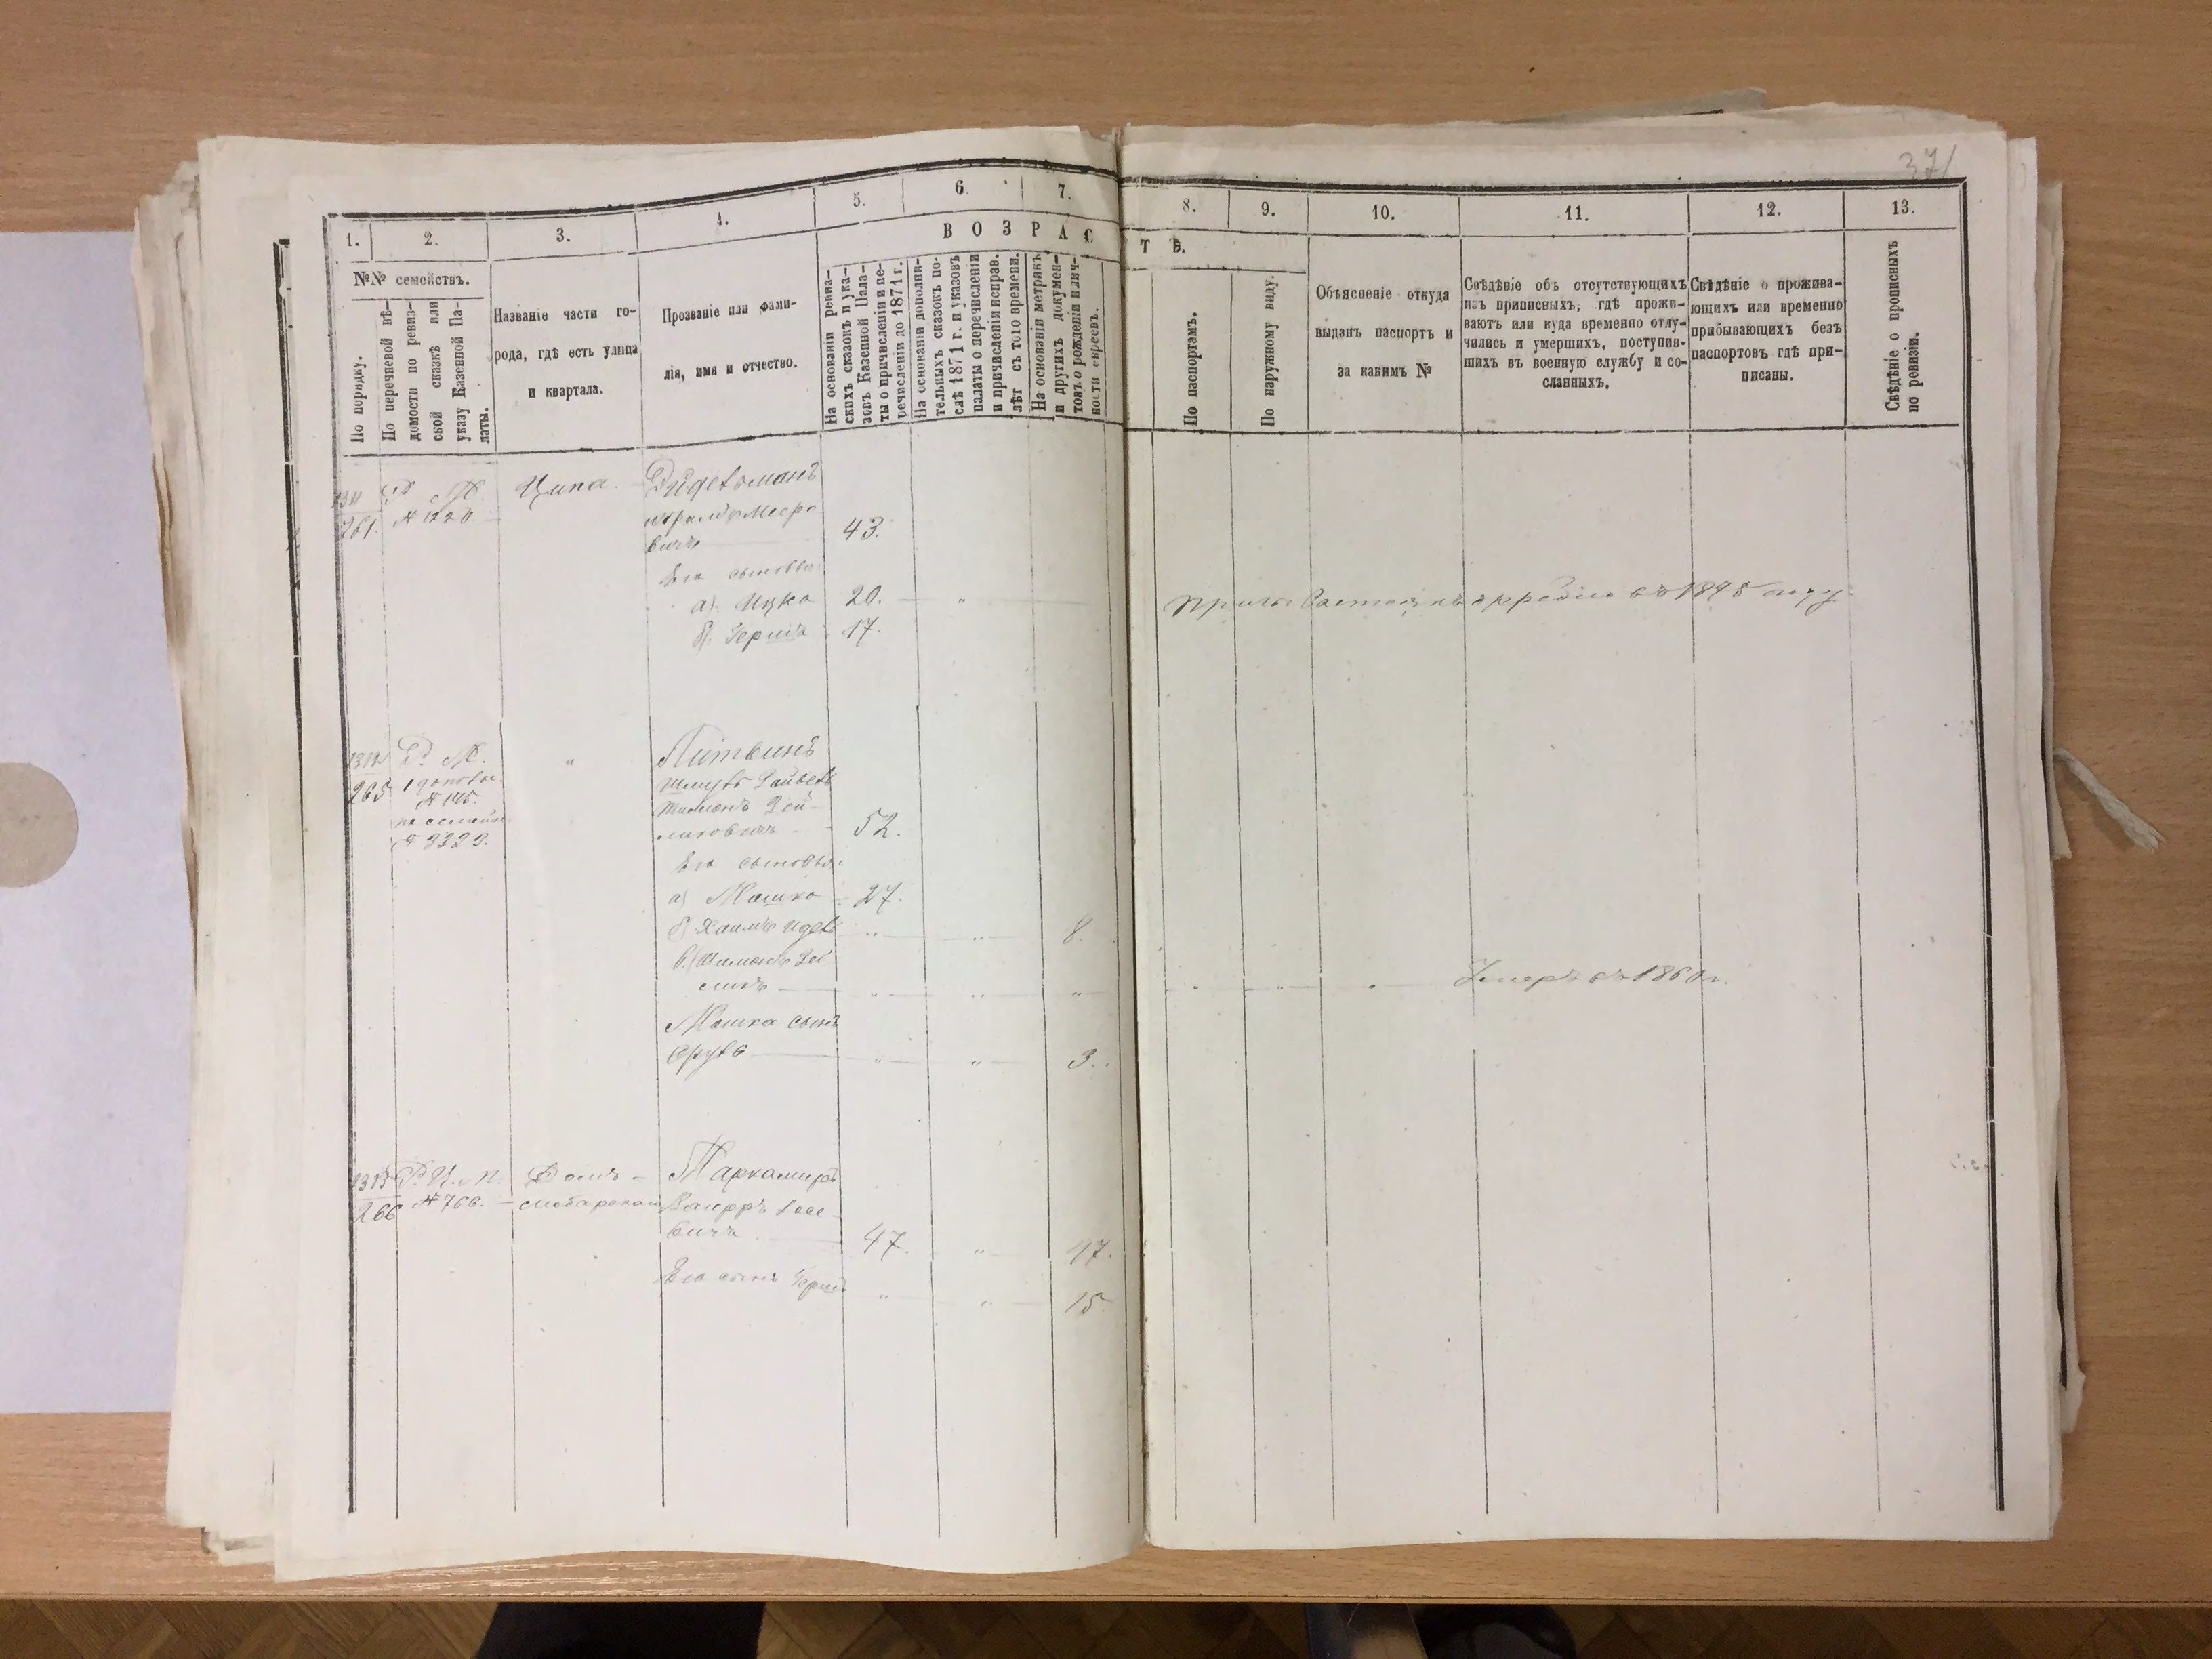 371
1.
2.
3.
4.
5.
6.
7.
8.
9.
10.
11.
12.
13.
ВОЗРАС
ТѢ.
№№ семействъ.
По порядку.
По перечневой вѣ-
домости по ревиз-
ской сказкѣ или
указу Казенной Па-
латы.
Названіе части го-
рода, гдѣ есть улица
и квартала.
Прозваніе или фами-
лія, имя и отчество.
На основаніи ревиз-
скихъ сказокъ и ука-
зовъ Казенной Пала-
ты о причисленіи и пе-
речисленіи до 1871 г.
На основаніи дополни-
тельныхъ сказокъ по-
слѣ 1871 г. и указовъ
палаты о перечисленіи
и причисленіи исправ.
лѣт съ того времени.
На основаніи метрикъ
и другихъ докумен-
товъ о рожденіи и лич-
ности евреевъ.
По паспортамъ.
По наружному виду.
Объясненіе откуда
выданъ паспортъ и
за какимъ №
Свѣдѣніе объ отсутствующихъ
изъ приписныхъ, гдѣ прожи-
ваютъ или куда временно отлу-
чились и умершихъ, поступив-
шихъ въ военную службу и со-
сланныхъ.
Свѣдѣніе о прожива-
ющихъ или временно
прибывающихъ безъ
паспортовъ гдѣ при-
писаны.
Свѣдѣніе о прописныхъ
по ревизіи.
1311
261.
Р. М.
№ 1220.
Ципа.
Эйдельманъ
Мееро
вичъ 43.
Его сыновья:
а). Ицко 20. "
б). Гершъ 17.
въ 1875 году.
1312
265
Р. М.
1 
№ 145.
по семейн.
№ 2229.
"
Литвинъ
Шмуль Лейвель
Шимонъ Зей-
ликовичъ 52.
Его сыновья:
а) Мошко 27.
б) Хаимъ Идель " " 8.
в) Шимонъ Зей
ликъ " " " " " " Умеръ въ 1860 г.
Мошка сынъ
Сруль " " 3.
1313
266
Р. Ц. п.
№ 766.
Маркамиръ
вичъ 47. " 47.
Его сынъ Гершъ " " 15.